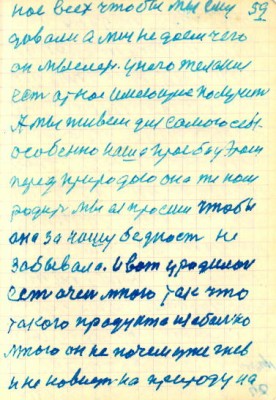 ное всех чтобы мы ему 39
давали а мы не даем чего
он мыслен. у него желания
ест одное имеющие получит
А мы живем для самого себя.
особенно наша просьба этом
перед природою она же нам
родит мы ея просим чтобы
она за нашу бедност не
забывала. И вот уродилос
ест очен много так что
такого продукта изобилно
много он не почем уже гнев
и не навист на природу на